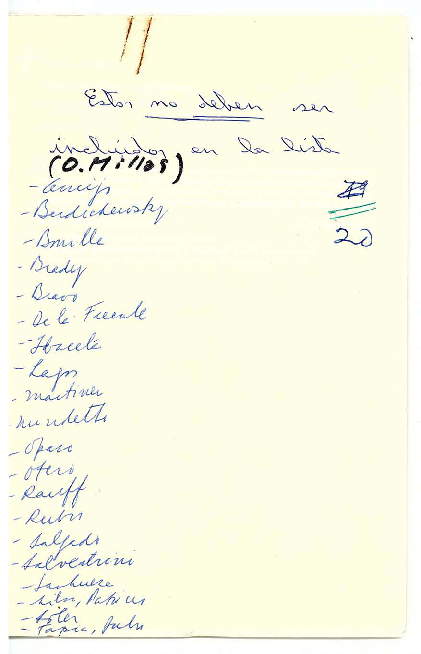 Estos no deben ser
incluidos en la lista
(O. Millas)
- Berdichewsky
20
- Bonilla
- Brady
- Bravo
- De la Fuente
- Lagos
- Martinez
- Opazo
- Otero
- Rauff
- Rubio
- Salgado
- Salvestrini
- Sanhueza
- Silva, Patricio
- Soler
- Tapia, Julio